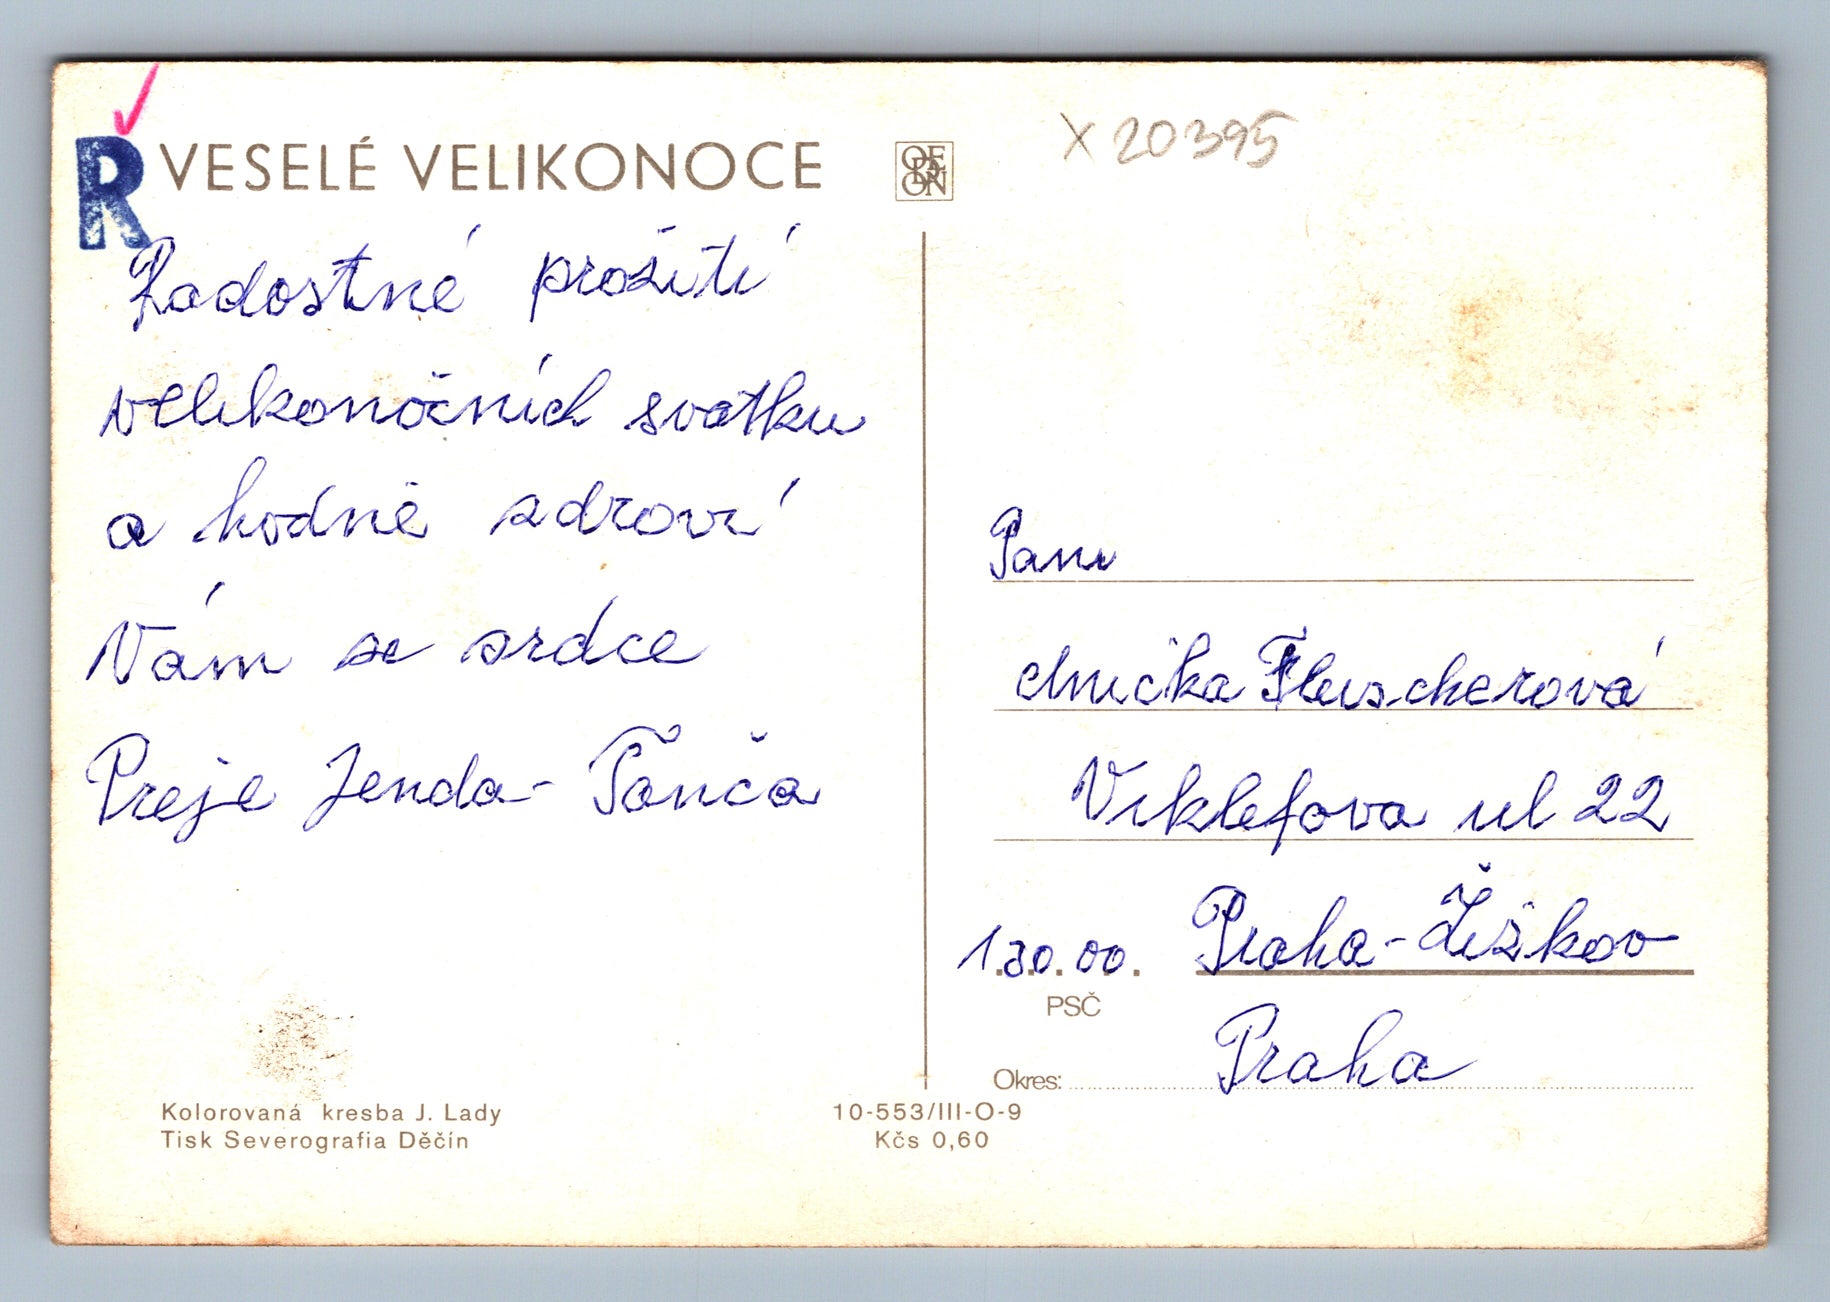 R
VESELÉ VELIKONOCE
ODEON
X 20395
Radostné prožití
velikonočních svatku
a hodně zdroví
Vám se srdce
Preje Jenda - Tonča
Kolorovaná kresba J. Lady
Tisk Severografia Děčín
10-553/III-O-9
Kčs 0,60
Pani
Anička Fleischerová
Viklefova ul 22
130.00. Praha-Žižkov
PSČ
Okres: Praha